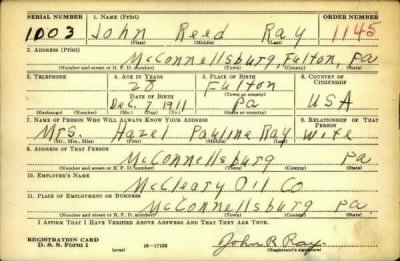 SERIAL NUMBER 1. NAME (Print) ORDER NUMBER
1003 John Reed Ray 1145
(First) (Middle) (Last)
2. ADDRESS (Print)
McConnellsburg, Fulton, Pa
(Number and street or R. F. D. number) (Town) (County) (State)
3. TELEPHONE 4. AGE IN YEARS 5. PLACE OF BIRTH 6. COUNTRY OF CITIZENSHIP
Fulton
(Town or county)
DATE OF BIRTH
Dec. 7, 1911 Pa USA
(Exchange) (Number) (Mo.) (Day) (Yr.) (State or country)
7. NAME OF PERSON WHO WILL ALWAYS KNOW YOUR ADDRESS 8. RELATIONSHIP OF THAT PERSON
Mrs. Hazel Pauline Ray Wife
(Mr., Mrs., Miss) (First) (Middle) (Last)
9. ADDRESS OF THAT PERSON
McConnellsburg Pa
(Number and street or R. F. D. number) (Town) (County) (State)
10. EMPLOYER'S NAME
McCleary Oil Co
11. PLACE OF EMPLOYMENT OR BUSINESS
McConnellsburg Pa
(Number and street or R. F. D. number) (Town) (County) (State)
I AFFIRM THAT I HAVE VERIFIED ABOVE ANSWERS AND THAT THEY ARE TRUE.
REGISTRATION CARD
D. S. S. Form 1 (over) 16-17105 John R Ray
(Registrant's signature)